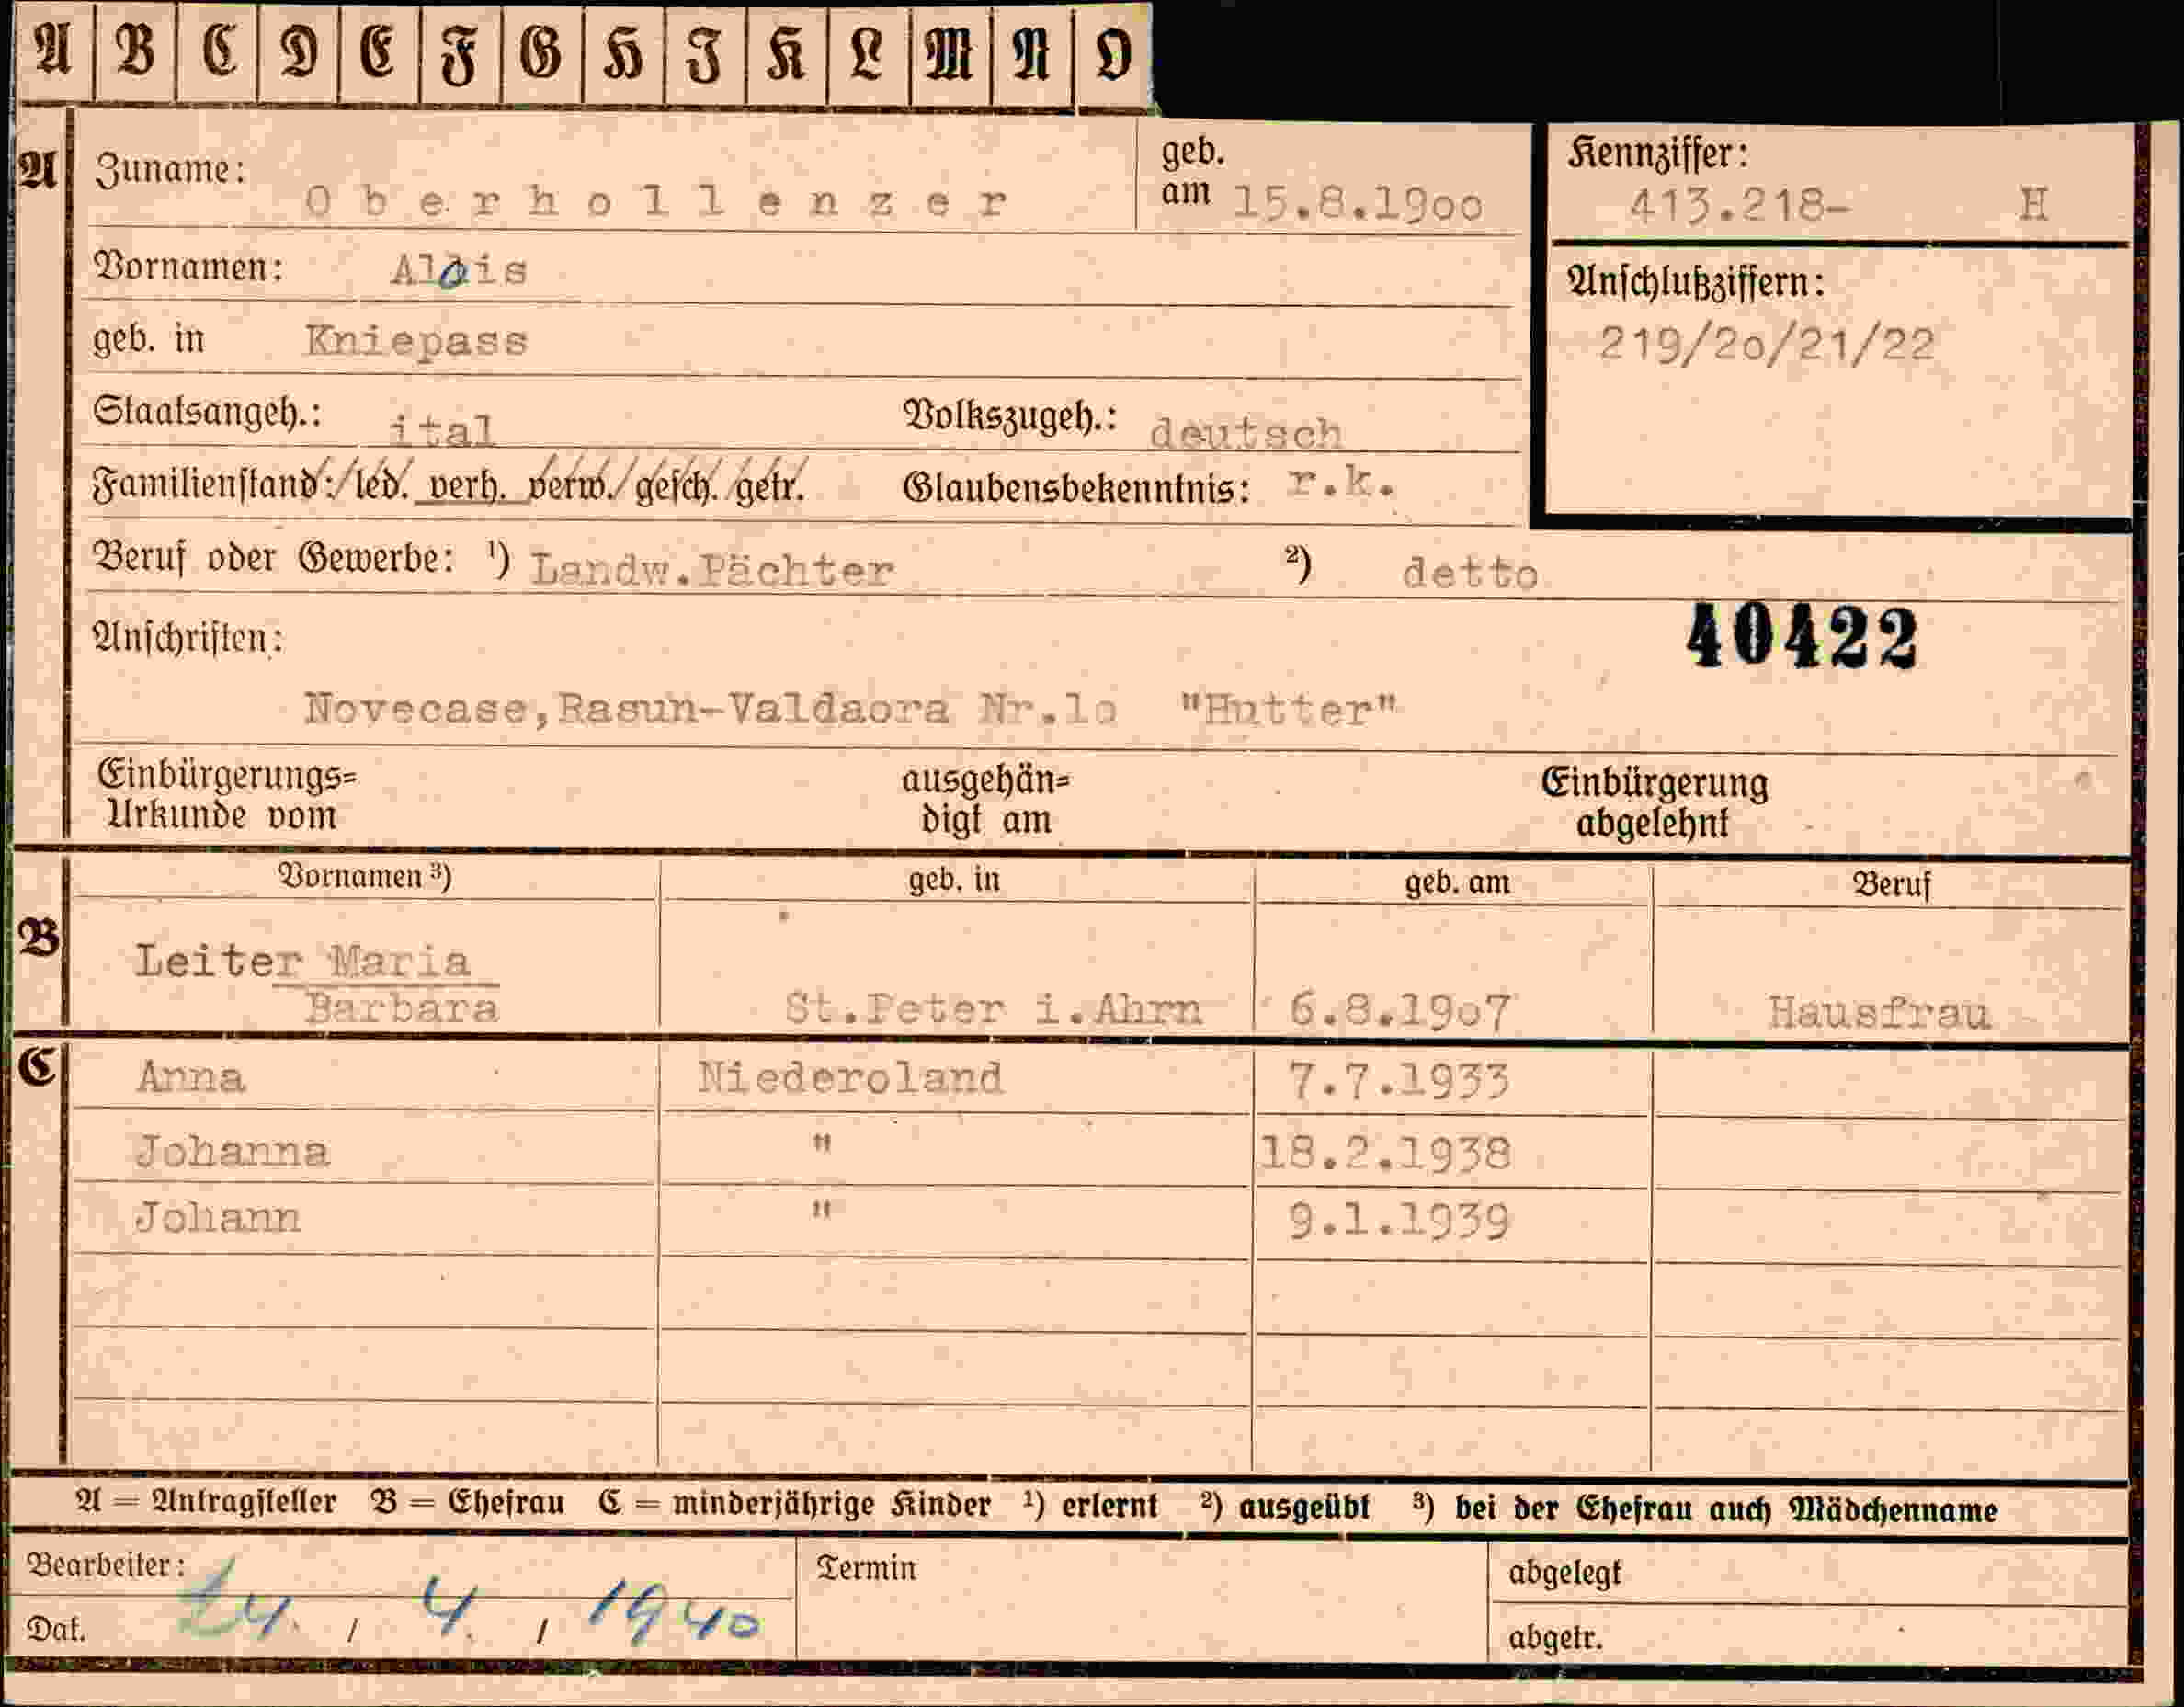 A B C D E F G H I K L M N O
A Zuname: Oberhollenzer geb. am 15.8.19oo
Kennziffer: 413.218- H
Vornamen: Alois
Anschlußziffern: 219/2o/21/22
geb. in Kniepass
Staatsangeh.: ital Volkszugeh.: deutsch
Familienstand: led. verh. verw. gesch. getr. Glaubensbekenntnis: r.k.
Beruf oder Gewerbe: ¹) Landw.Pächter ²) detto
40422
Anschriften:
Novecase,Rasun-Valdaora Nr.lo "Hutter"
Einbürgerungs= ausgehän= Einbürgerung
Urkunde vom digt am abgelehnt
Vornamen ³) geb. in geb. am Beruf
B Leiter Maria
Barbara St.Peter i.Ahrn 6.8.19o7 Hausfrau
C Anna Niederoland 7.7.1933
Johanna " 18.2.1938
Johann " 9.1.1939
A = Antragsteller B = Ehefrau C = minderjährige Kinder ¹) erlernt ²) ausgeübt ³) bei der Ehefrau auch Mädchenname
Bearbeiter: Termin abgelegt
Dat. 24. / 4. / 1940 abgetr.